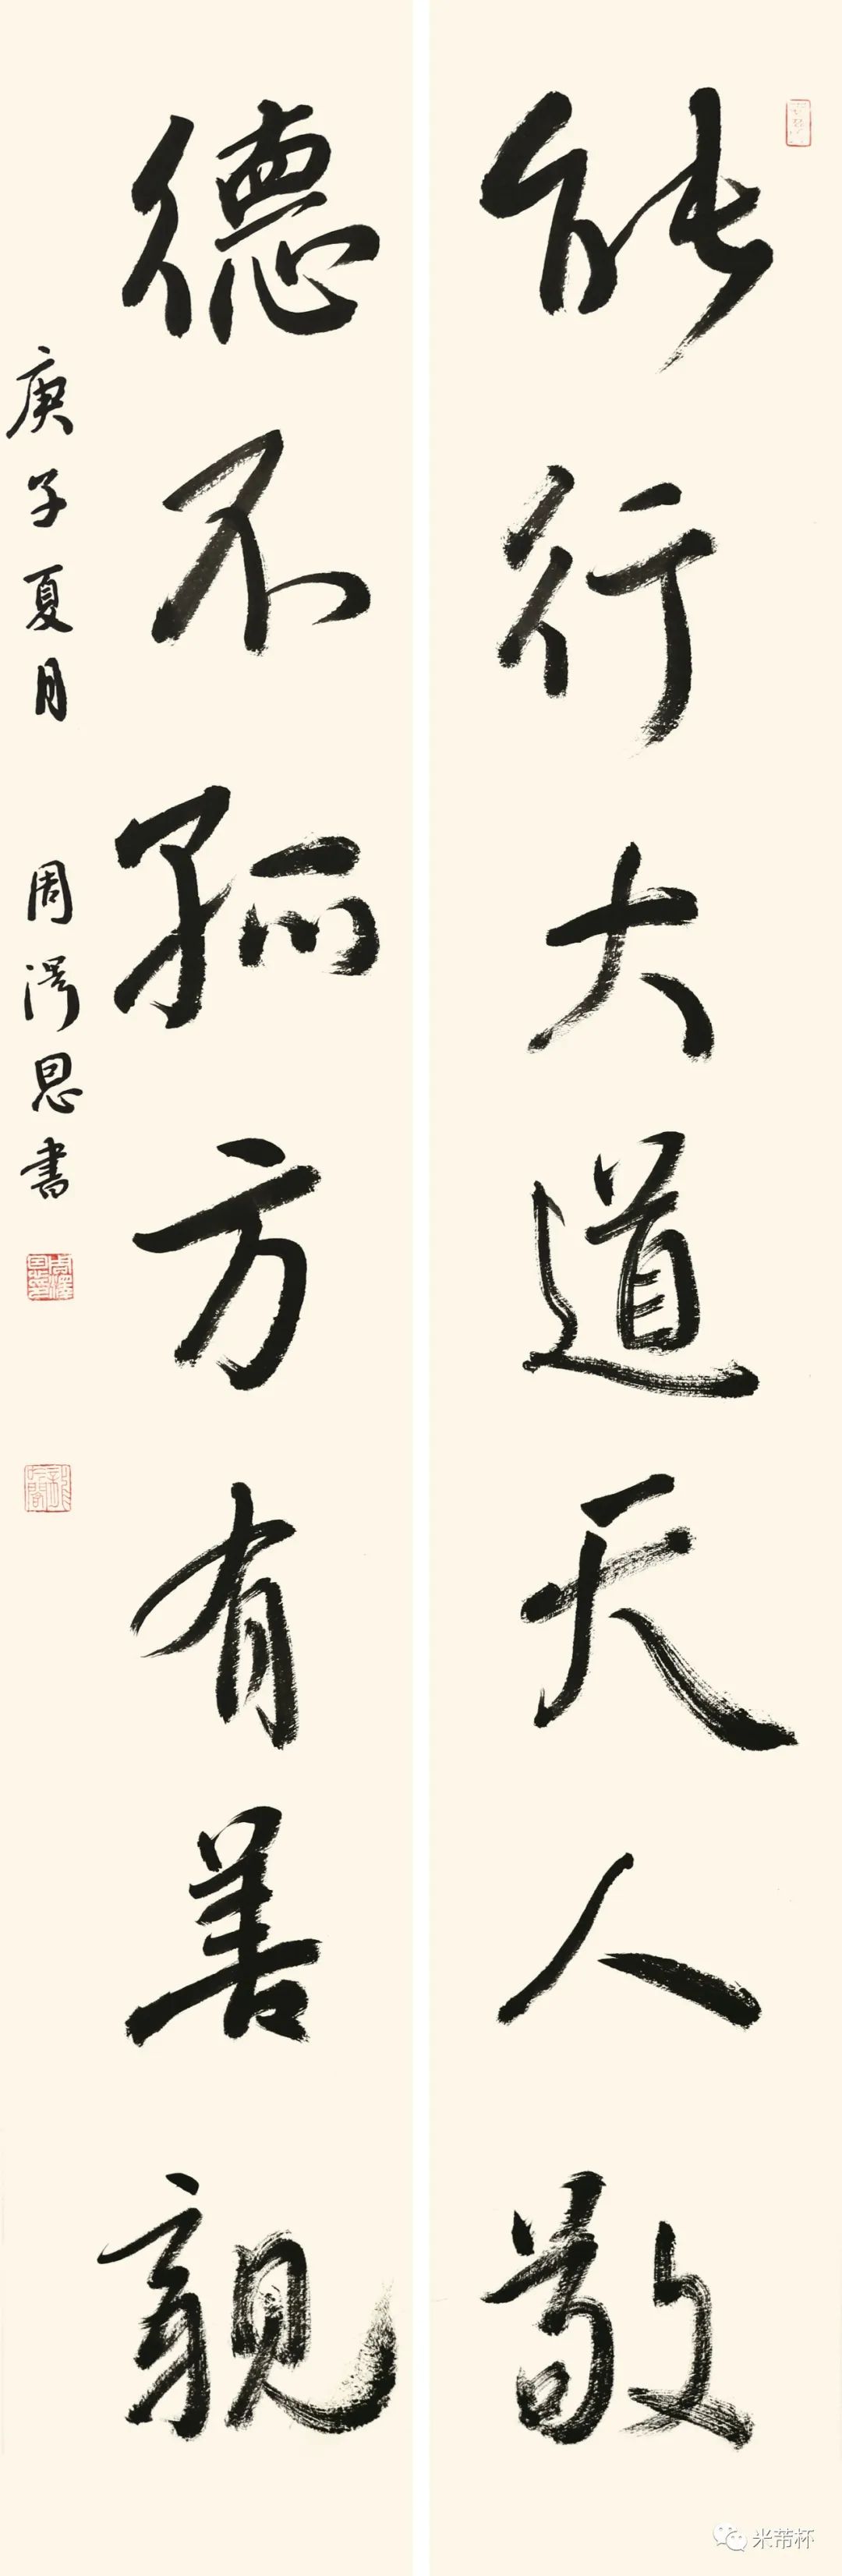 能行大道天人敬
德不孤方有善親
庚子夏月 周澤恩書
米芾杯